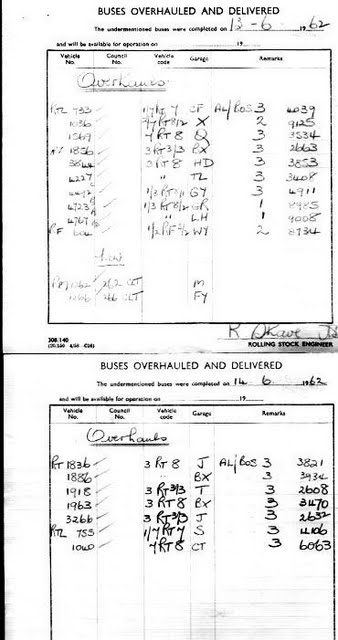 BUSES OVERHAULED AND DELIVERED
The undermentioned buses were completed on 13-6 1962
and will be available for operation on 19
Vehicle No. Council No. Vehicle code Garage Remarks
Overhauls
RTL 733 1/7 RT 7 CF AL/BOS 3 4039
1036 X 2 9125
1569 7 RT 8 Q 3 3534
1856 3 RT 3/3 BX 3 2663
3844 3 RT 8 HD 3 3853
4227 " TL 3 3408
1/3 RT 8 GY 3 4911
4723 1/3 RT 8/2 GR 1 8985
4767 " LH 1 9008
RF 604 1/2 RF 2/2 WY 2 8734
New
RM 1262 262 CLT M
1266 266 CLT FY
308.140
ROLLING STOCK ENGINEER
BUSES OVERHAULED AND DELIVERED
The undermentioned buses were completed on 14 6 1962
and will be available for operation on 19
Vehicle No. Council No. Vehicle code Garage Remarks
Overhauls
RT 1836 3 RT 8 J AL/BOS 3 3821
1886 " BX 3 3934
1918 3 RT 3/3 T 3 2608
1963 3 RT 8 BX 3 3470
3266 3 RT 3/3 J 3 2632
RTL 755 1/7 RT 7 S 3 4106
1040 7 RT 8 CT 3 6063